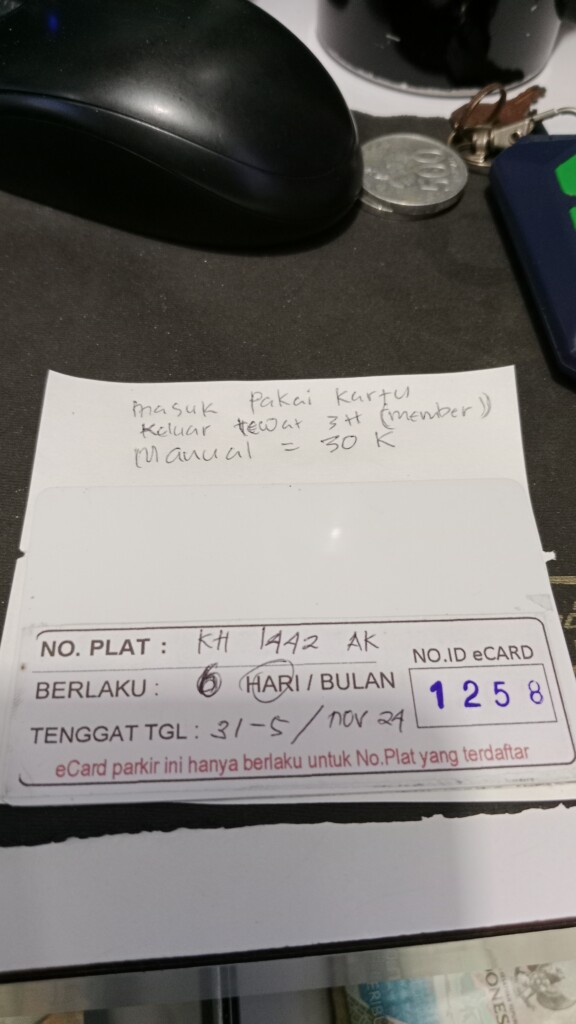 500
masuk pakai kartu
keluar lewat 3H (member)
Manual = 30 K
NO. PLAT : KH 1442 AK
BERLAKU : 6 HARI / BULAN
TENGGAT TGL : 31-5 / nov 24
NO.ID eCARD
1258
eCard parkir ini hanya berlaku untuk No.Plat yang terdaftar